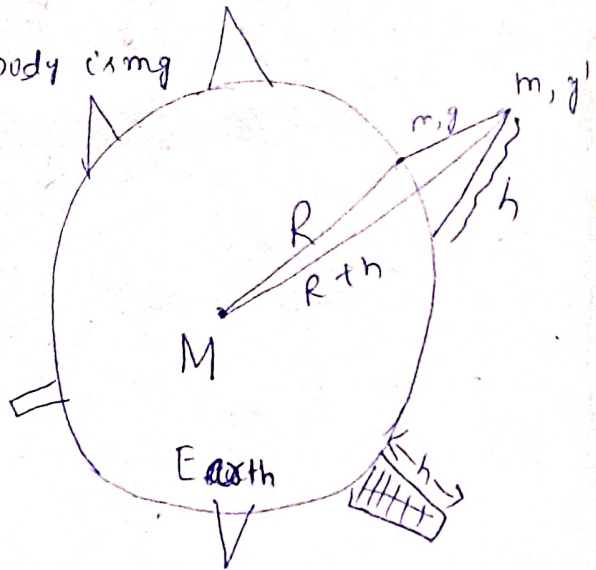 body is mg
m, g'
m, g
h
R
R + h
M
Earth
h